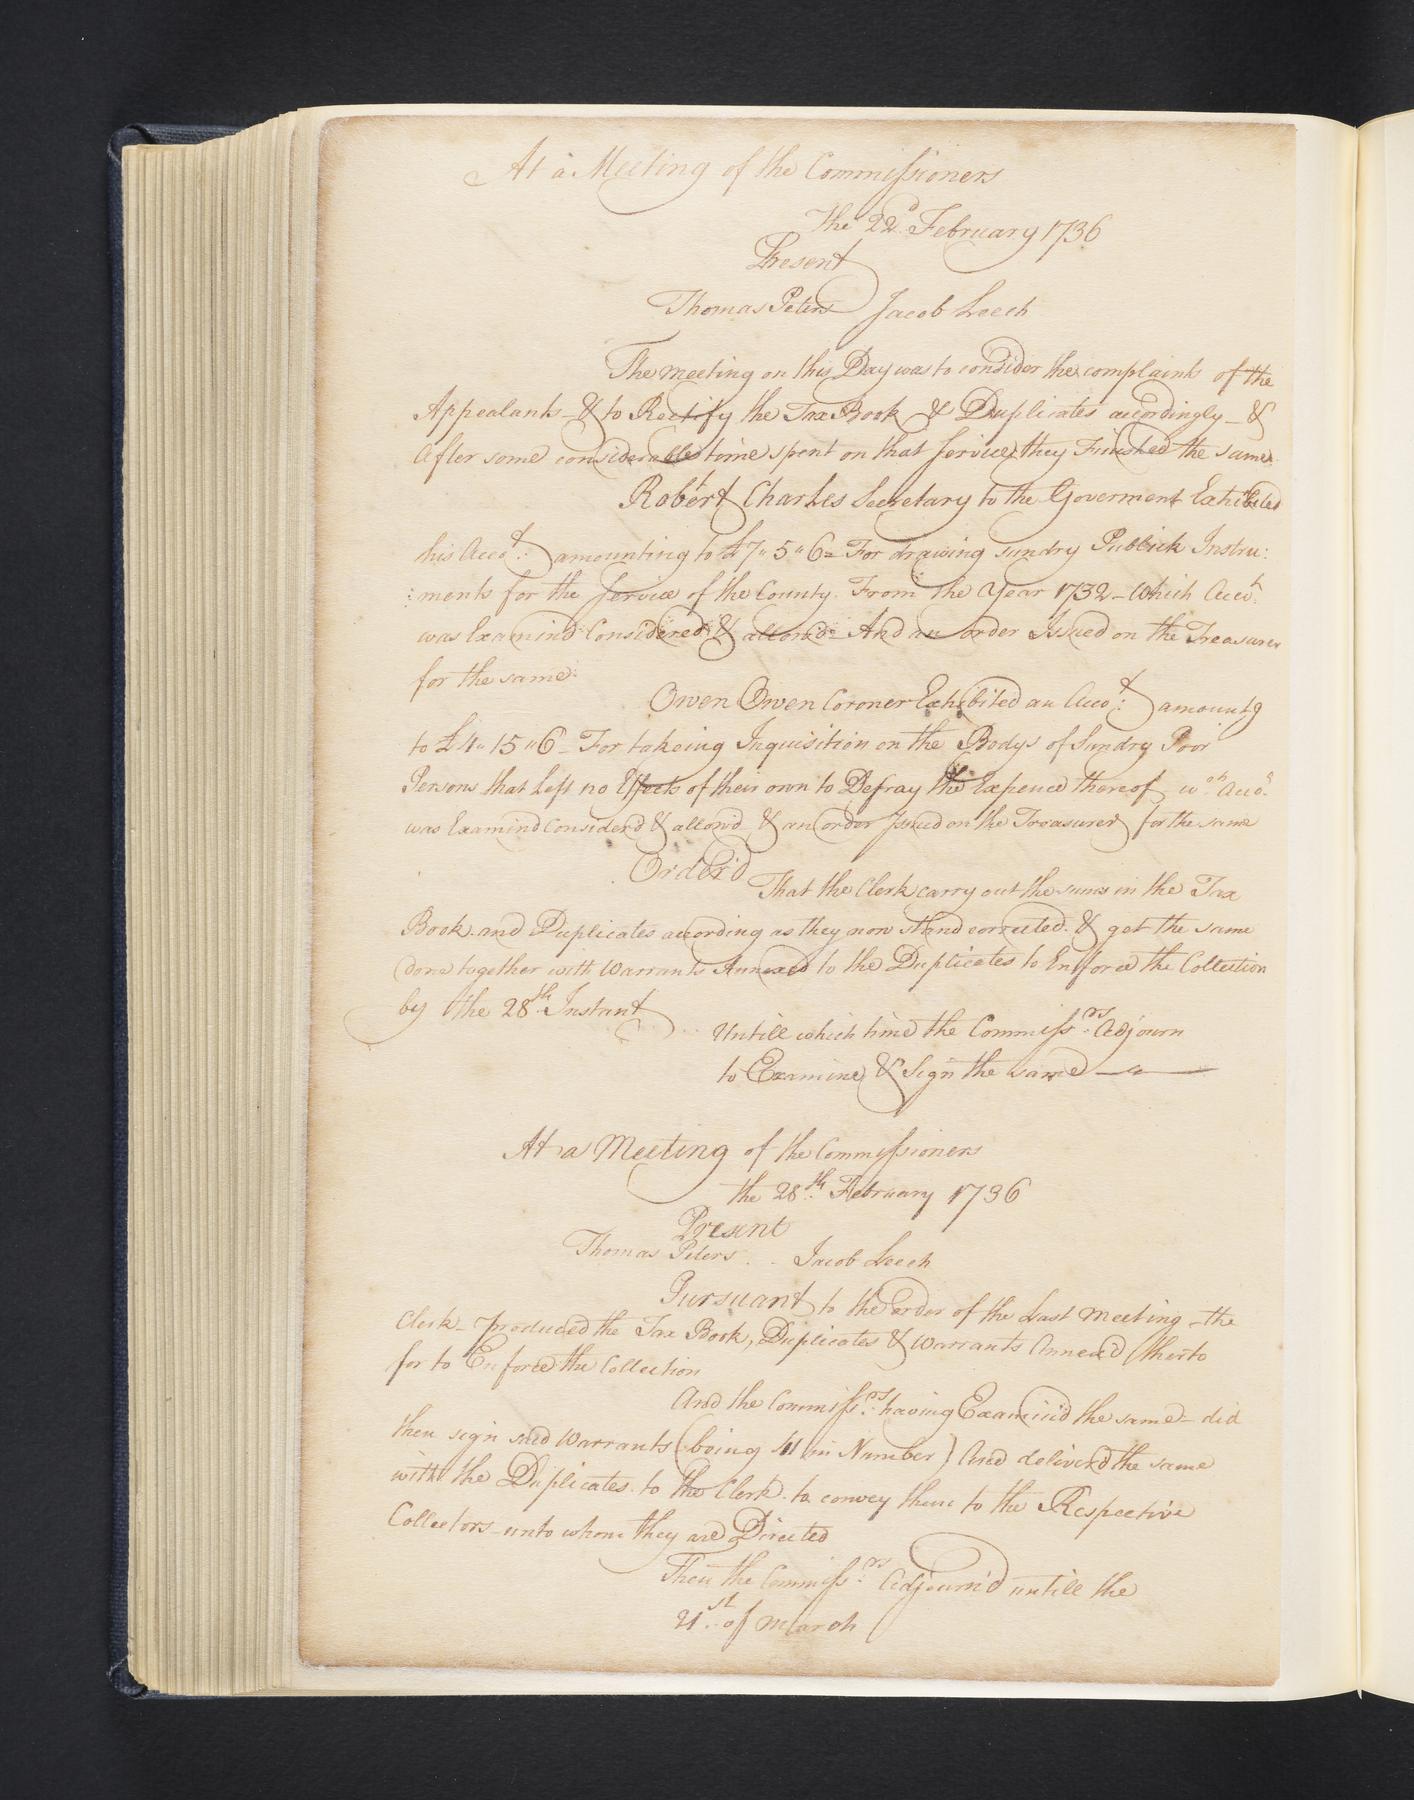 At a Meeting of the Commissioners
The 22d February 1736
Present
Thomas Peters Jacob Leech
The meeting on this Day was to consider the complaints of the
Appealants - & to Rectify the Tax Book & Duplicates accordingly - &
After some considerable time spent on that Service they Finished the same
Robert Charles Secretary to the Goverment Exhibited
his Accot: amounting to £7"5"6= For drawing sundry Publick Instru:
:ments for the Service of the County From the Year 1732 - Which Accot
was Examind Considered & allowd= And an order Issued on the Treasurer
for the same:
Owen Owen Coroner Exhibited an Accot: amountg
to £4"15"6 - For takeing Inquisition on the Bodys of Sundry Poor
Persons that left no Effects of their own to Defray the Expence thereof wch. Accot.
was Examind Considerd & allow'd & an order Issued on the Treasurer for the same
Order'd
That the Clerk carry out the sums in the Tax
Book and Duplicates according as they now stand corrected & get the same
done together with Warrants Annexed to the Duplicates to Enforce the Collection
by the 28th Instant
Untill which time the Commissrs: adjourn
to Examine & Sign the same
At a Meeting of the Commissioners
the 28th February 1736
Present
Thomas Peters . . Jacob Leech
Pursuant to the order of the Last Meeting - the
Clerk - produced the Tax Book, Duplicates & Warrants Annex'd therto
for to Enforce the Collection
And the Commissrs: having Examin'd the same - did
then sign said Warrants (being 41 in Number) And deliver'd the same
with the Duplicates to the Clerk to convey them to the Respective
Collectors - unto whom they are Directed
Then the Commissrs: Adjourn'd untill the
21st: of March